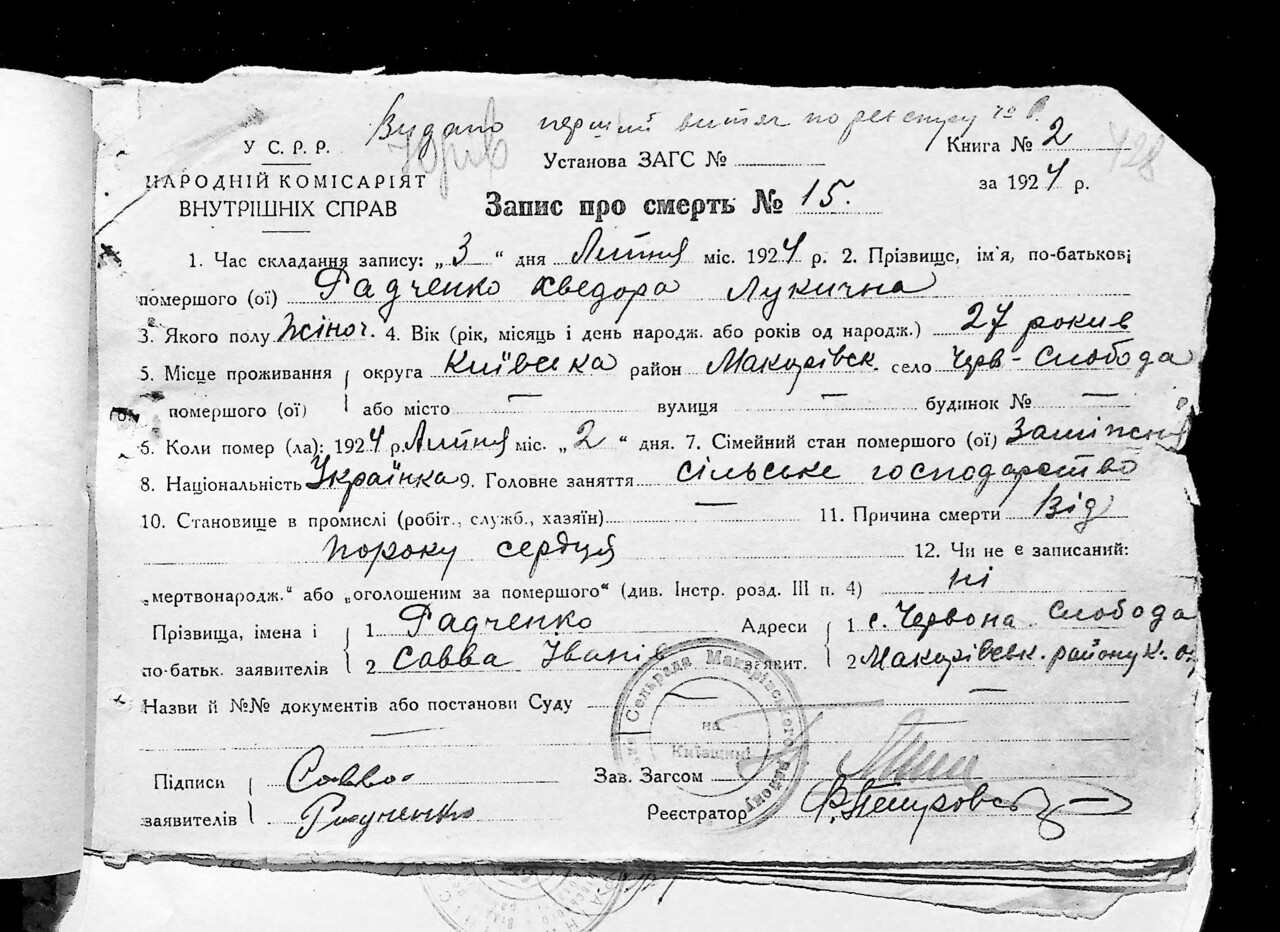 Видано перший витяг по реєстру № 8.
У С. Р. Р.
Юрів
Установа ЗАГС №
Книга № 2
428
НАРОДНІЙ КОМІСАРІЯТ
ВНУТРІШНІХ СПРАВ
за 1924 р.
Запис про смерть № 15.
1. Час складання запису: „ 3 “ дня Липня міс. 1924 р. 2. Прізвище, ім'я, по-батькові
помершого (ої) Радченко Хведора Лукична
3. Якого полу Жіноч. 4. Вік (рік, місяць і день народж. або років од народж.) 27 років
5. Місце проживання округа Київська район Макарівськ. село Черв-Слобода
помершого (ої) або місто — вулиця — будинок № —
6. Коли помер (ла): 1924 р. Липня міс. „ 2 “ дня. 7. Сімейний стан помершого (ої) Заміжня
8. Національність Українка 9. Головне заняття сільське господарство
10. Становище в промислі (робіт., служб., хазяїн) — 11. Причина смерти Від
пороку сердця 12. Чи не є записаний:
„мертвонародж.“ або „оголошеним за помершого“ (див. Інстр. розд. III п. 4) ні
Прізвища, імена і 1 Радченко Адреси 1 с. Червона Слобода
по-батьк. заявителів 2 Савва Іванів заявит. 2 Макарівськ. району К. о.
Назви й №№ документів або постанови Суду —
Сельрада Макарівського району
на
Київщині
Підписи Савва
Зав. Загсом
заявителів Радченко
Реєстратор Ф. Петровсь